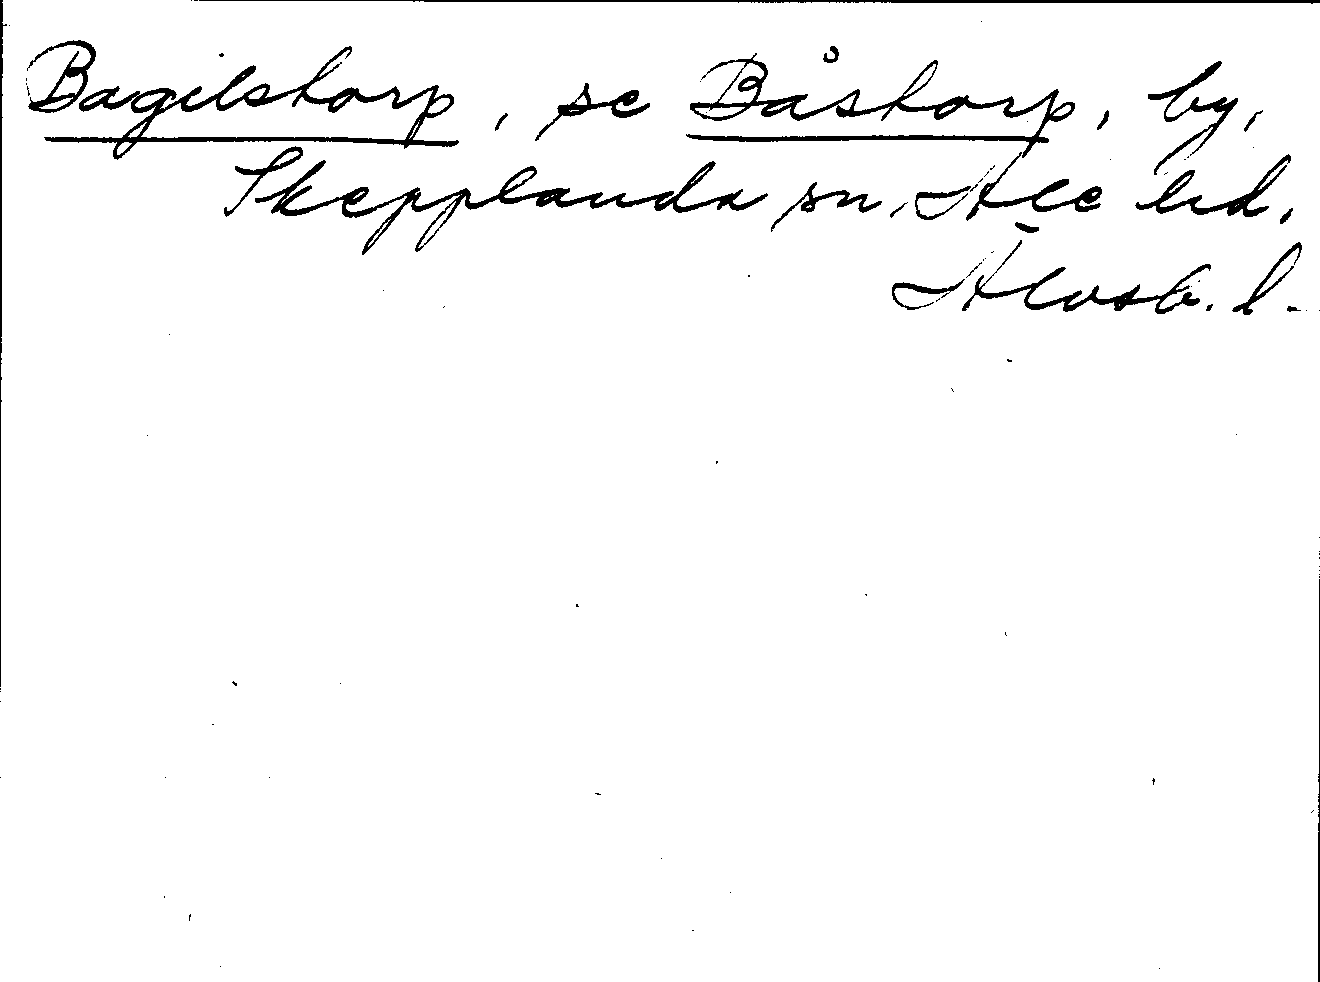 Bagilstorp, se Båstorp, by,
Skepplanda sn, Ale hd,
Älvsb. l.